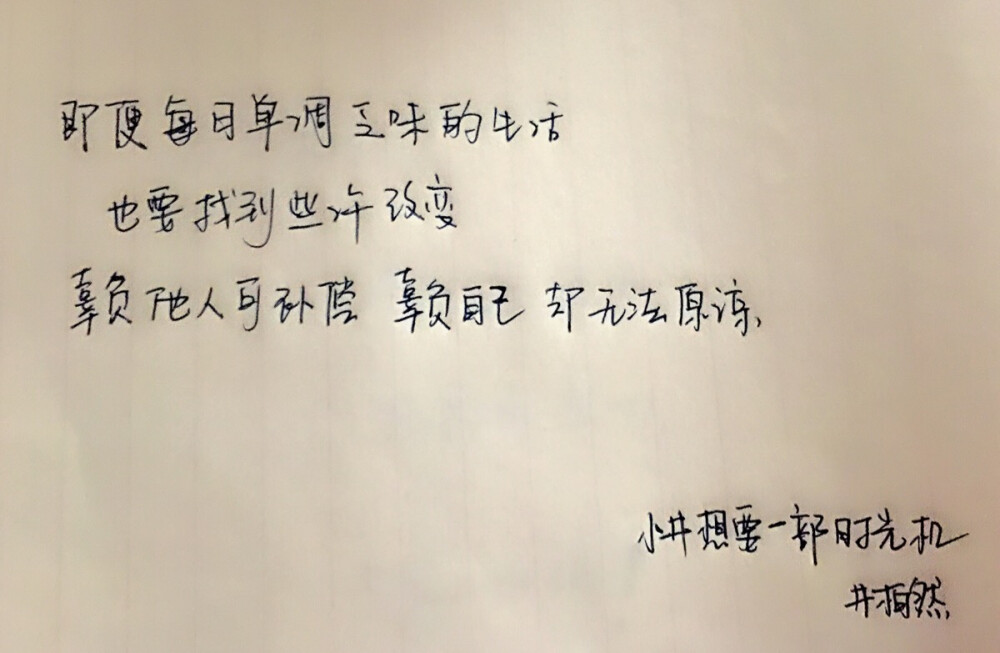 即便每日单调乏味的生活
也要找到些许改变
辜负他人可补偿 辜负自己 却无法原谅、
小井想要一部时光机
井柏然